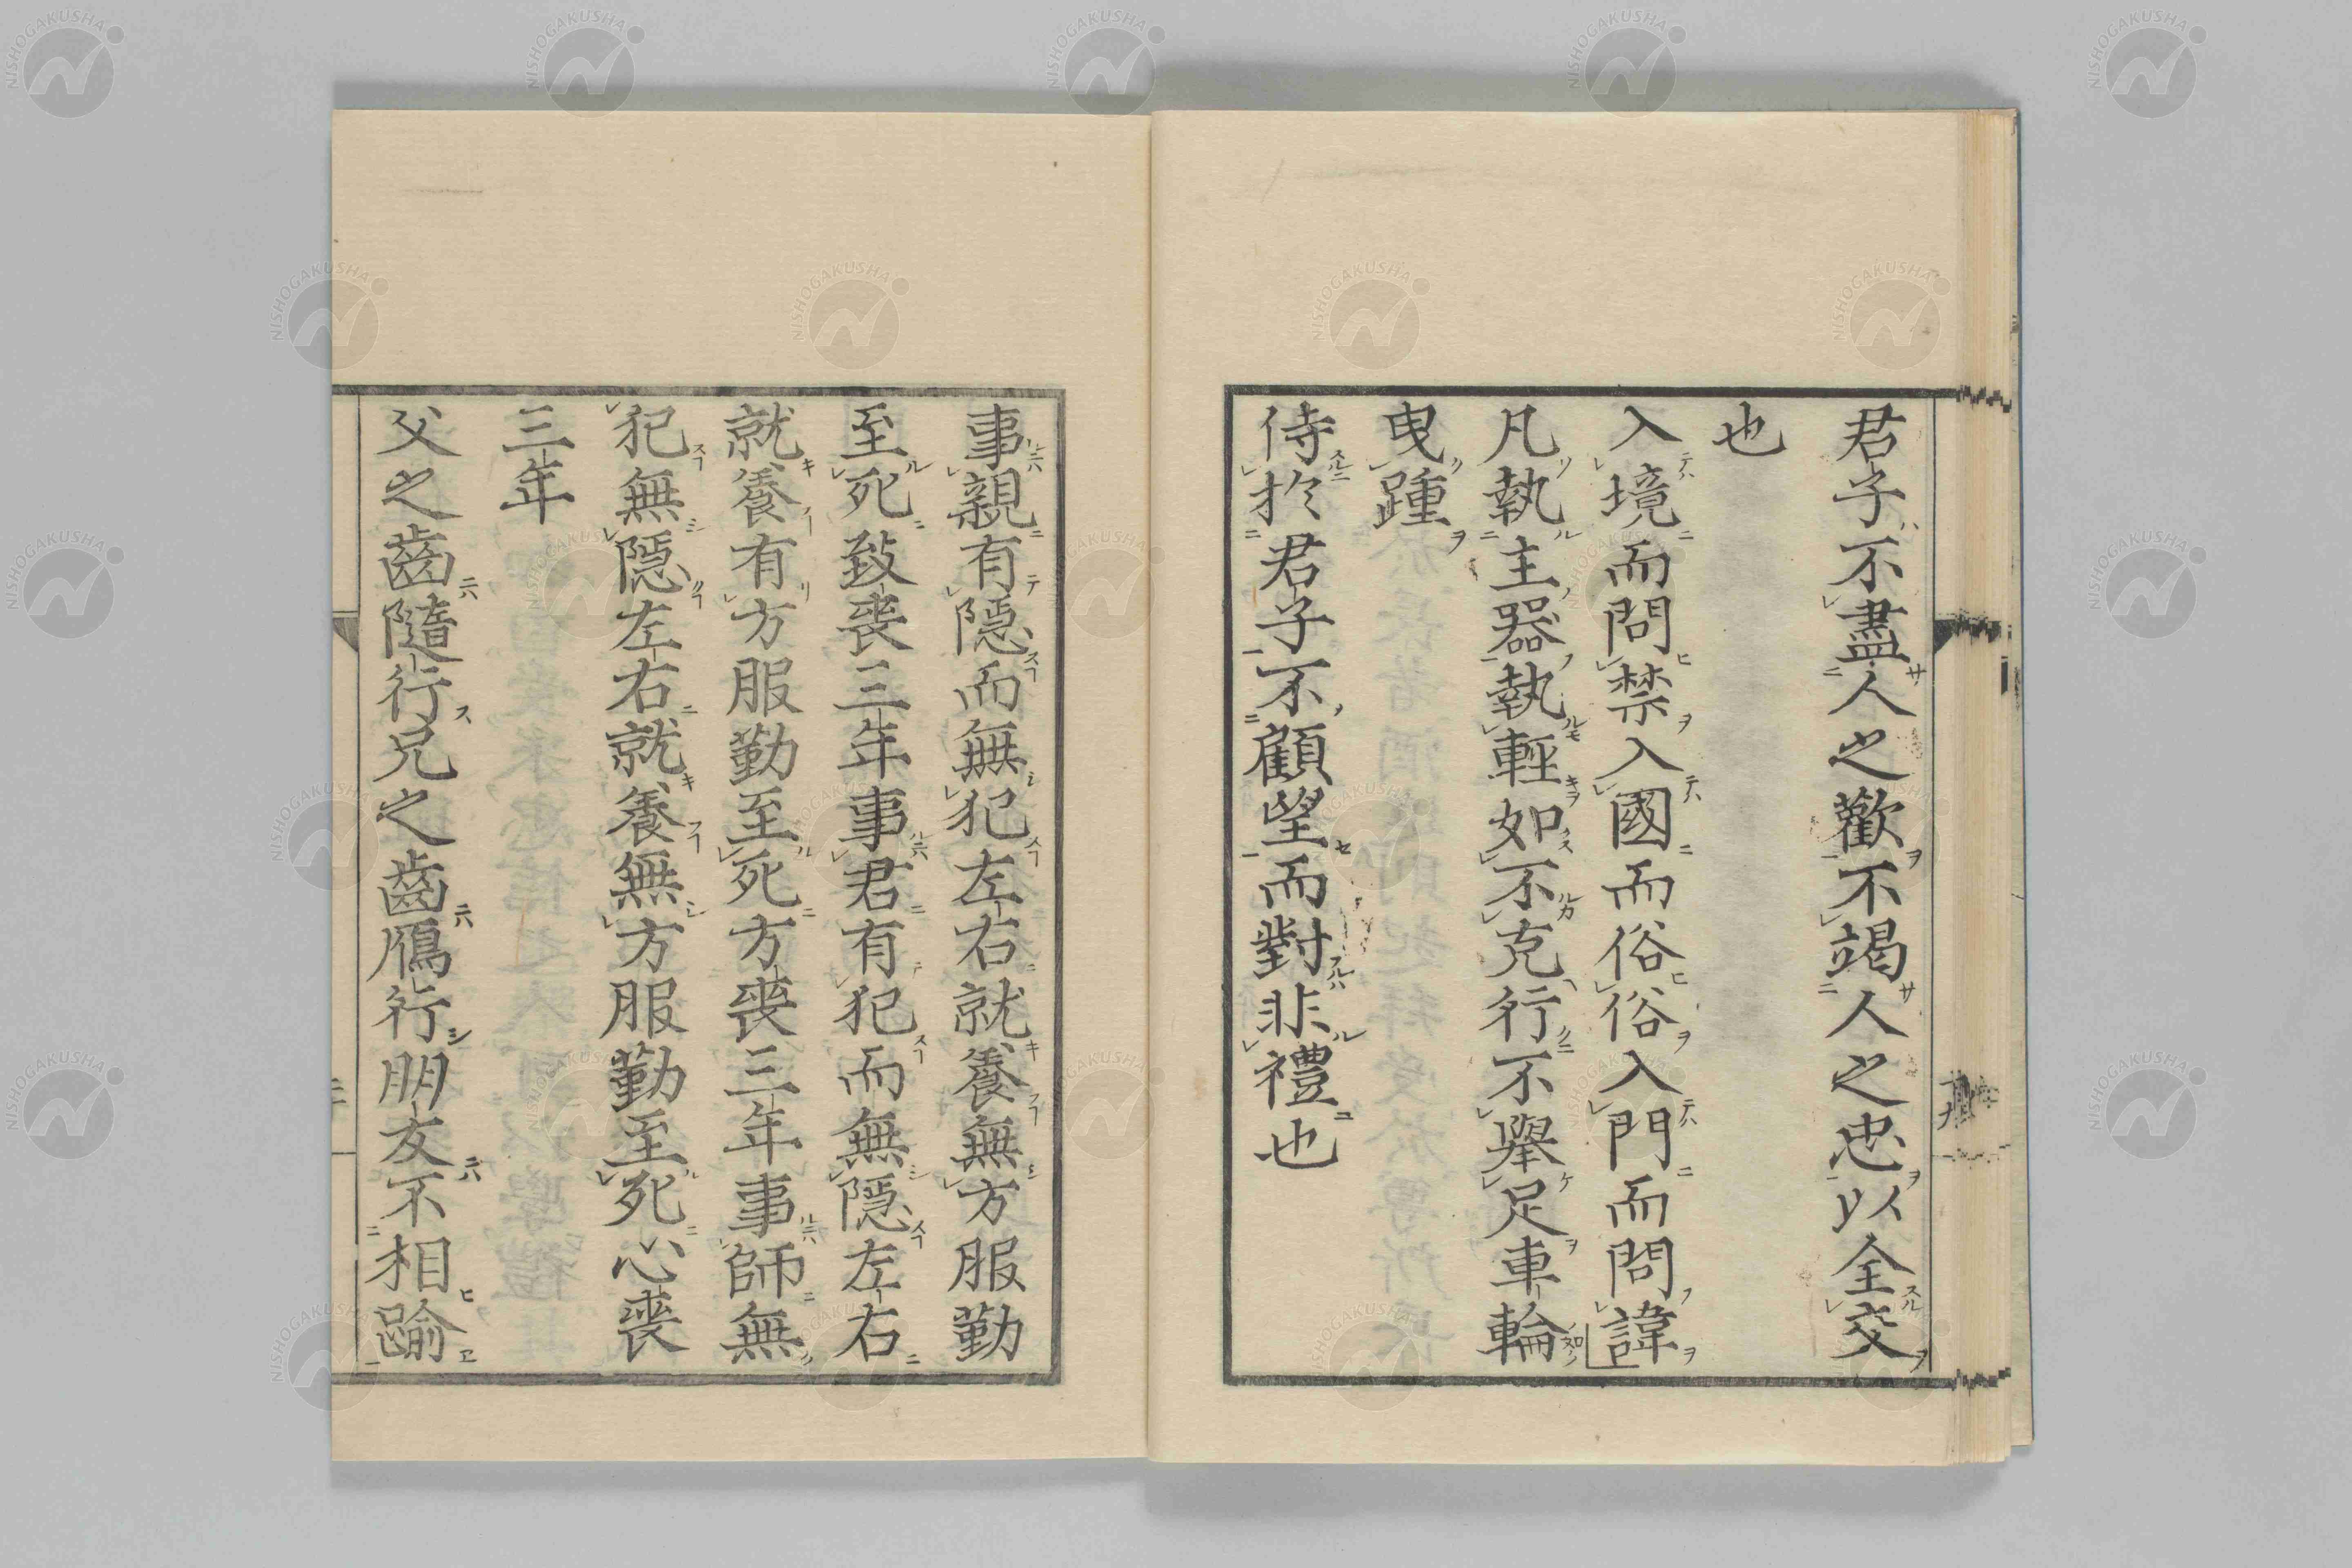 君子不盡人之歡不竭人之忠以全交
也
入境而問禁入國而俗俗入門而問諱
凡執主器執輕如不克行不舉足車輪
曳踵
侍於君子不顧望而對非禮也
事親有隱而無犯左右就養無方服勤
至死致喪三年事君有犯而無隱左右
就養有方服勤至死方喪三年事師無
犯無隱左右就養無方服勤至死心喪
三年
父之齒隨行兄之齒鴈行朋友不相踰